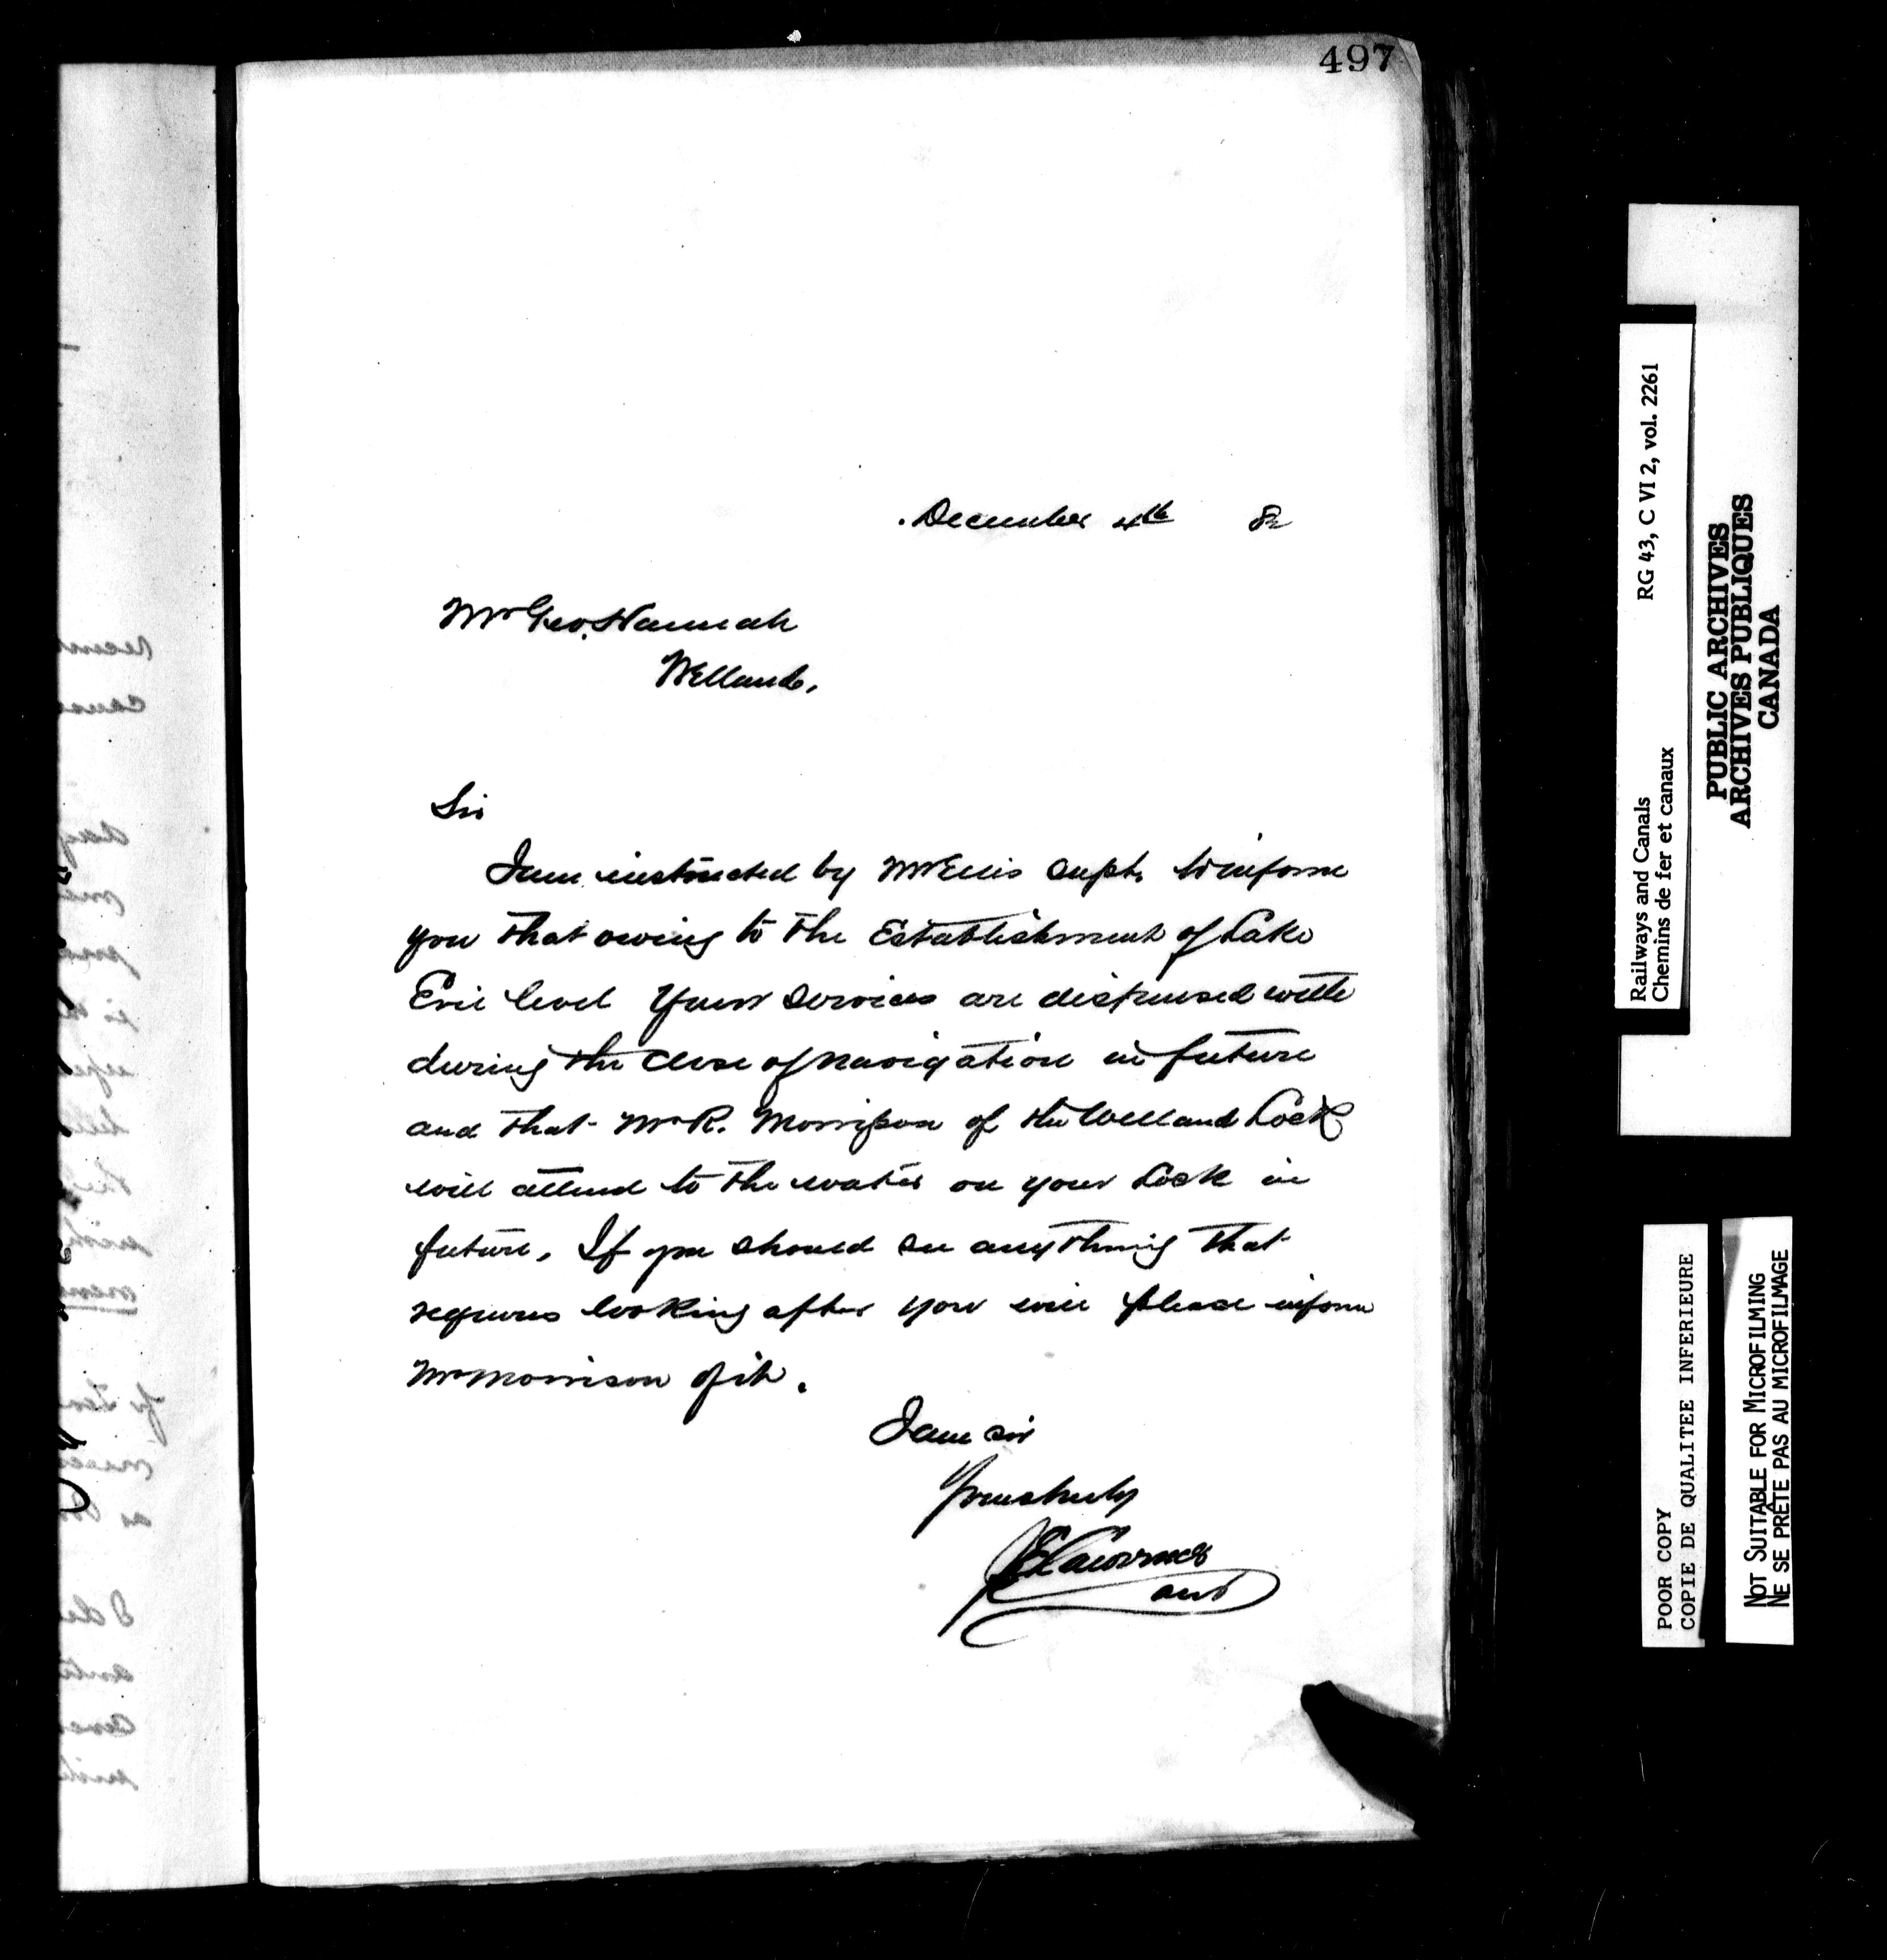 497
December 4th 82
Mr Geo. Hannah
Welland,
Sir
I am instructed by Mr Ellis Supt. to inform
you that owing to the Establishment of Lake
Erie level your services are dispensed with
during the close of navigation in future
and that Mr R. Morrison of the Welland Lock
will attend to the water on your Lock in
future. If you should see anything that
requires looking after you will please inform
Mr Morrison of it.
I am Sir
Yours truly
RG 43, C VI 2, vol. 2261
Railways and Canals
Chemins de fer et canaux
PUBLIC ARCHIVES
ARCHIVES PUBLIQUES
CANADA
POOR COPY
COPIE DE QUALITEE INFERIEURE
NOT SUITABLE FOR MICROFILMING
NE SE PRÊTE PAS AU MICROFILMAGE